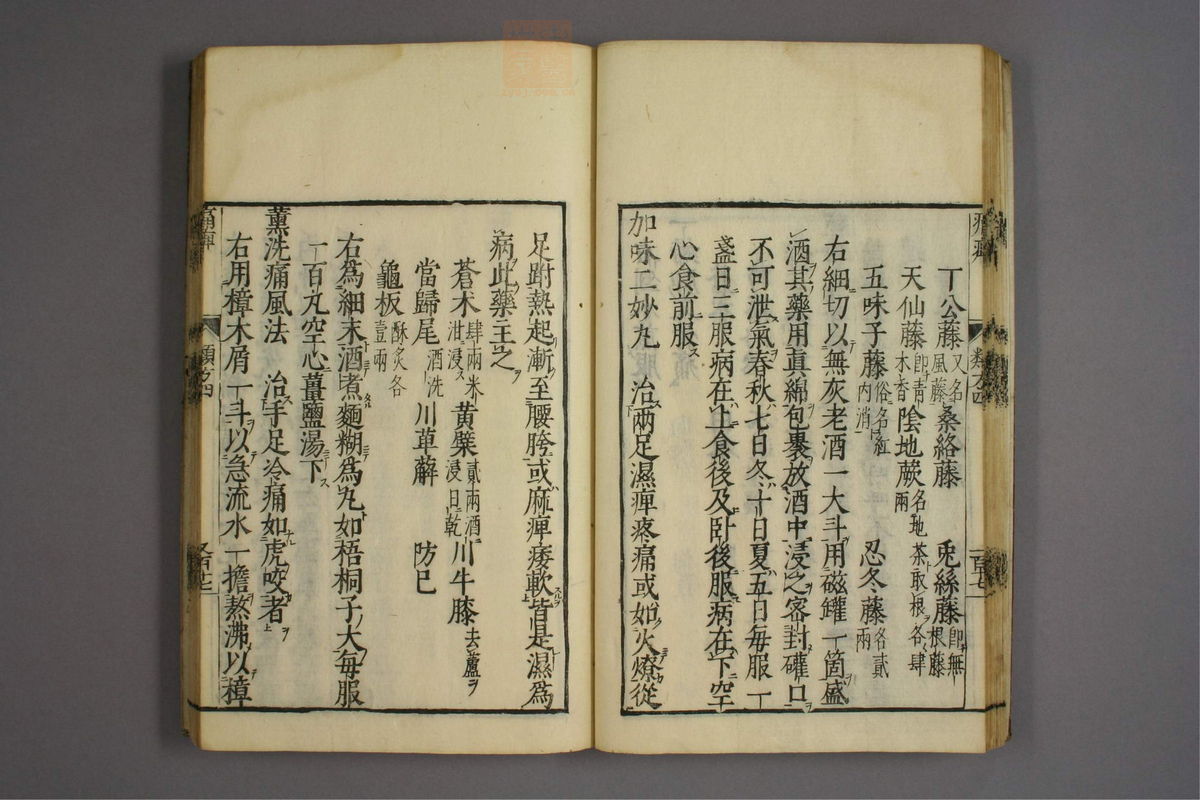 丁公藤 又名風藤 桑絡藤 兎絲藤 即無根藤
天仙藤 即青木香 陰地蕨 名地茶取根各肆兩
五味子藤 俗名紅内消 忍冬藤 各貳兩
右細切以無灰老酒一大斗用磁罐一箇盛
酒其藥用眞綿包裹放酒中浸之密封礶口
不可泄氣春秋七日冬十日夏五日毎服一
盞日三服病在上食後及卧後服病在下空
心食前服
加味二妙丸 治兩足濕痺疼痛或如火燎從
足跗熱起漸至腰胯或麻痺痿軟皆是濕爲
病此藥主之
蒼木 肆兩米泔浸 黄蘗 貳兩酒浸日乾 川牛膝 去蘆
當歸尾 酒洗 川萆薢 防已
龜板 酥炙各壹兩
右為細末酒煮麵糊為丸如梧桐子大毎服
一百丸空心薑鹽湯下
薫洗痛風法 治手足冷痛如虎咬者
右用樟木屑一斗以急流水一擔熬沸以樟